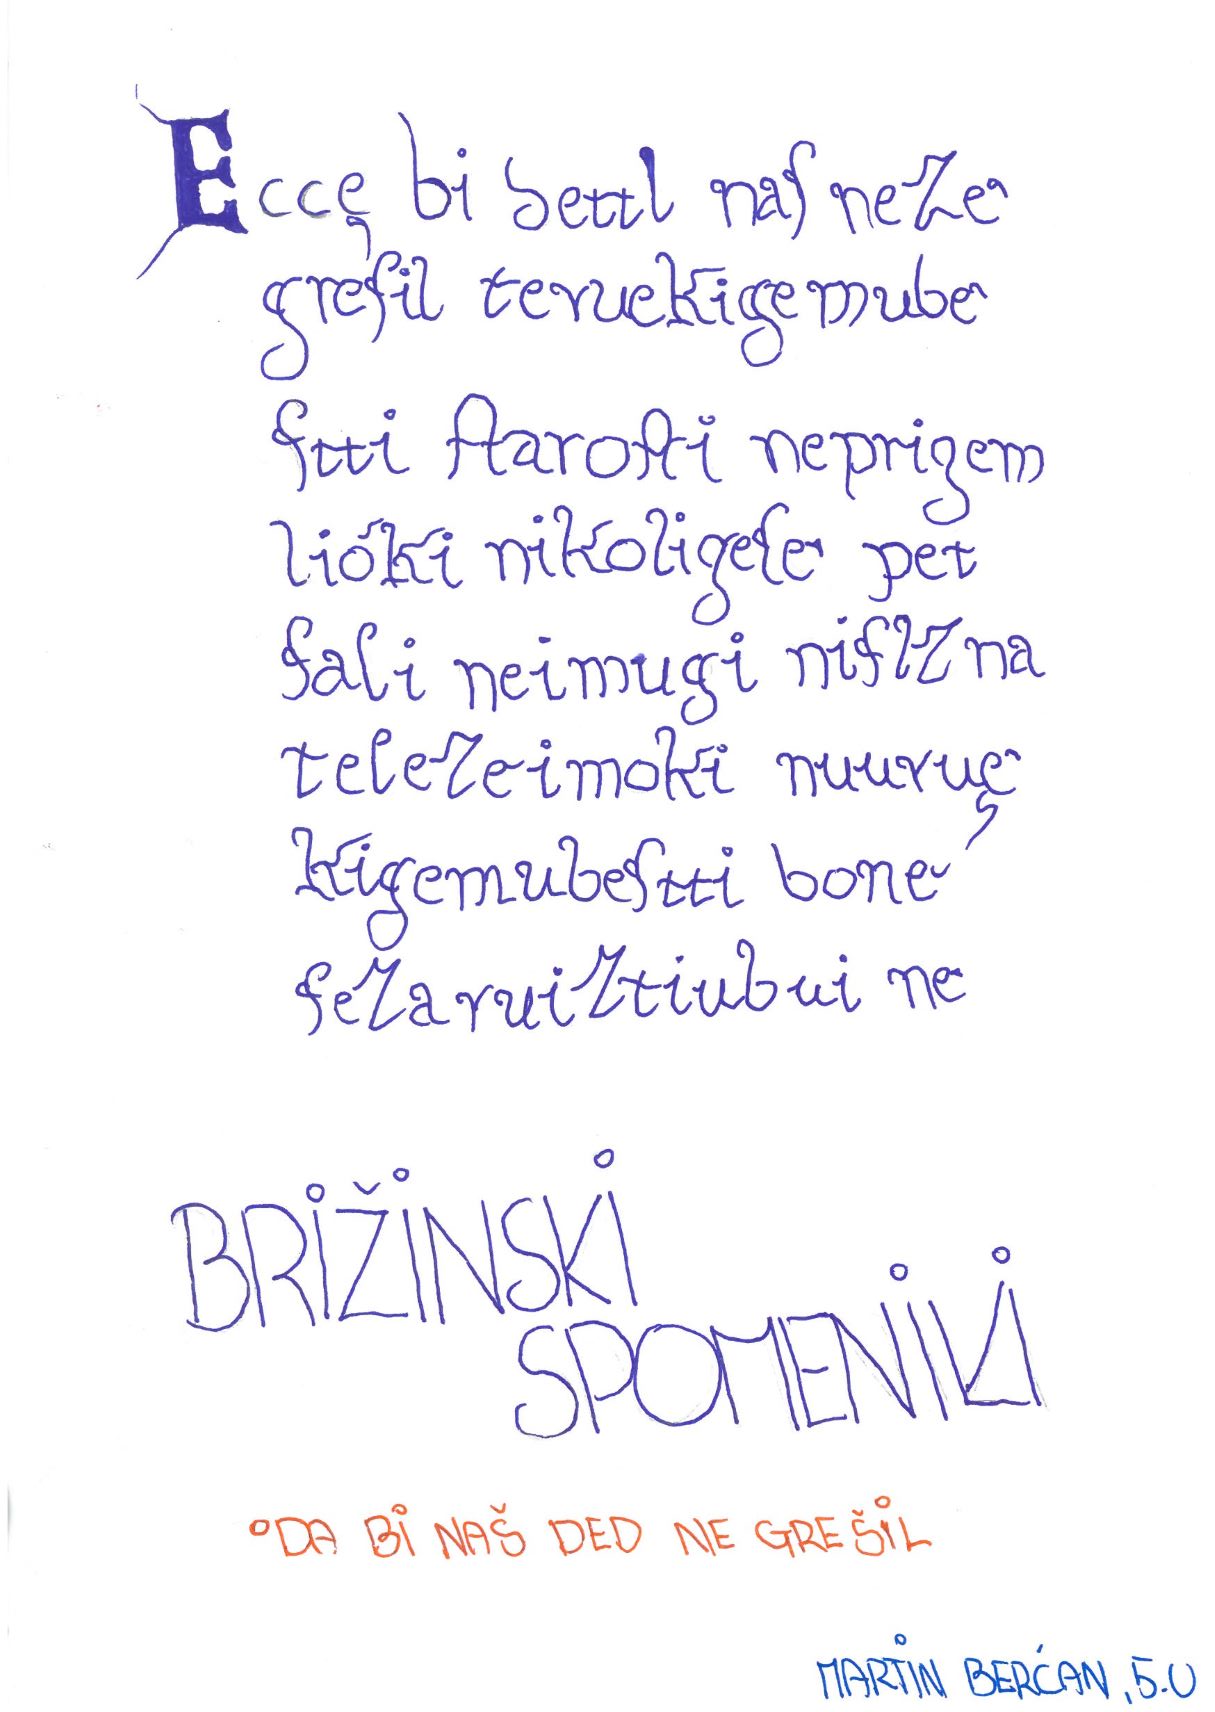 Eccę bi detтl naſ neze
greſil tevuekigemube
ſtti ſtaroſti neprigem
lióki nikoligeſe pet
ſali neimugi niſlzna
telezeimoki nuuvuę
kigemubeſtti bone
ſezavuiztiubui ne
BRIŽINSKI
SPOMENIKI
°DA BI NAŠ DED NE GREŠIL
MARTIN BERĆAN, 5.U